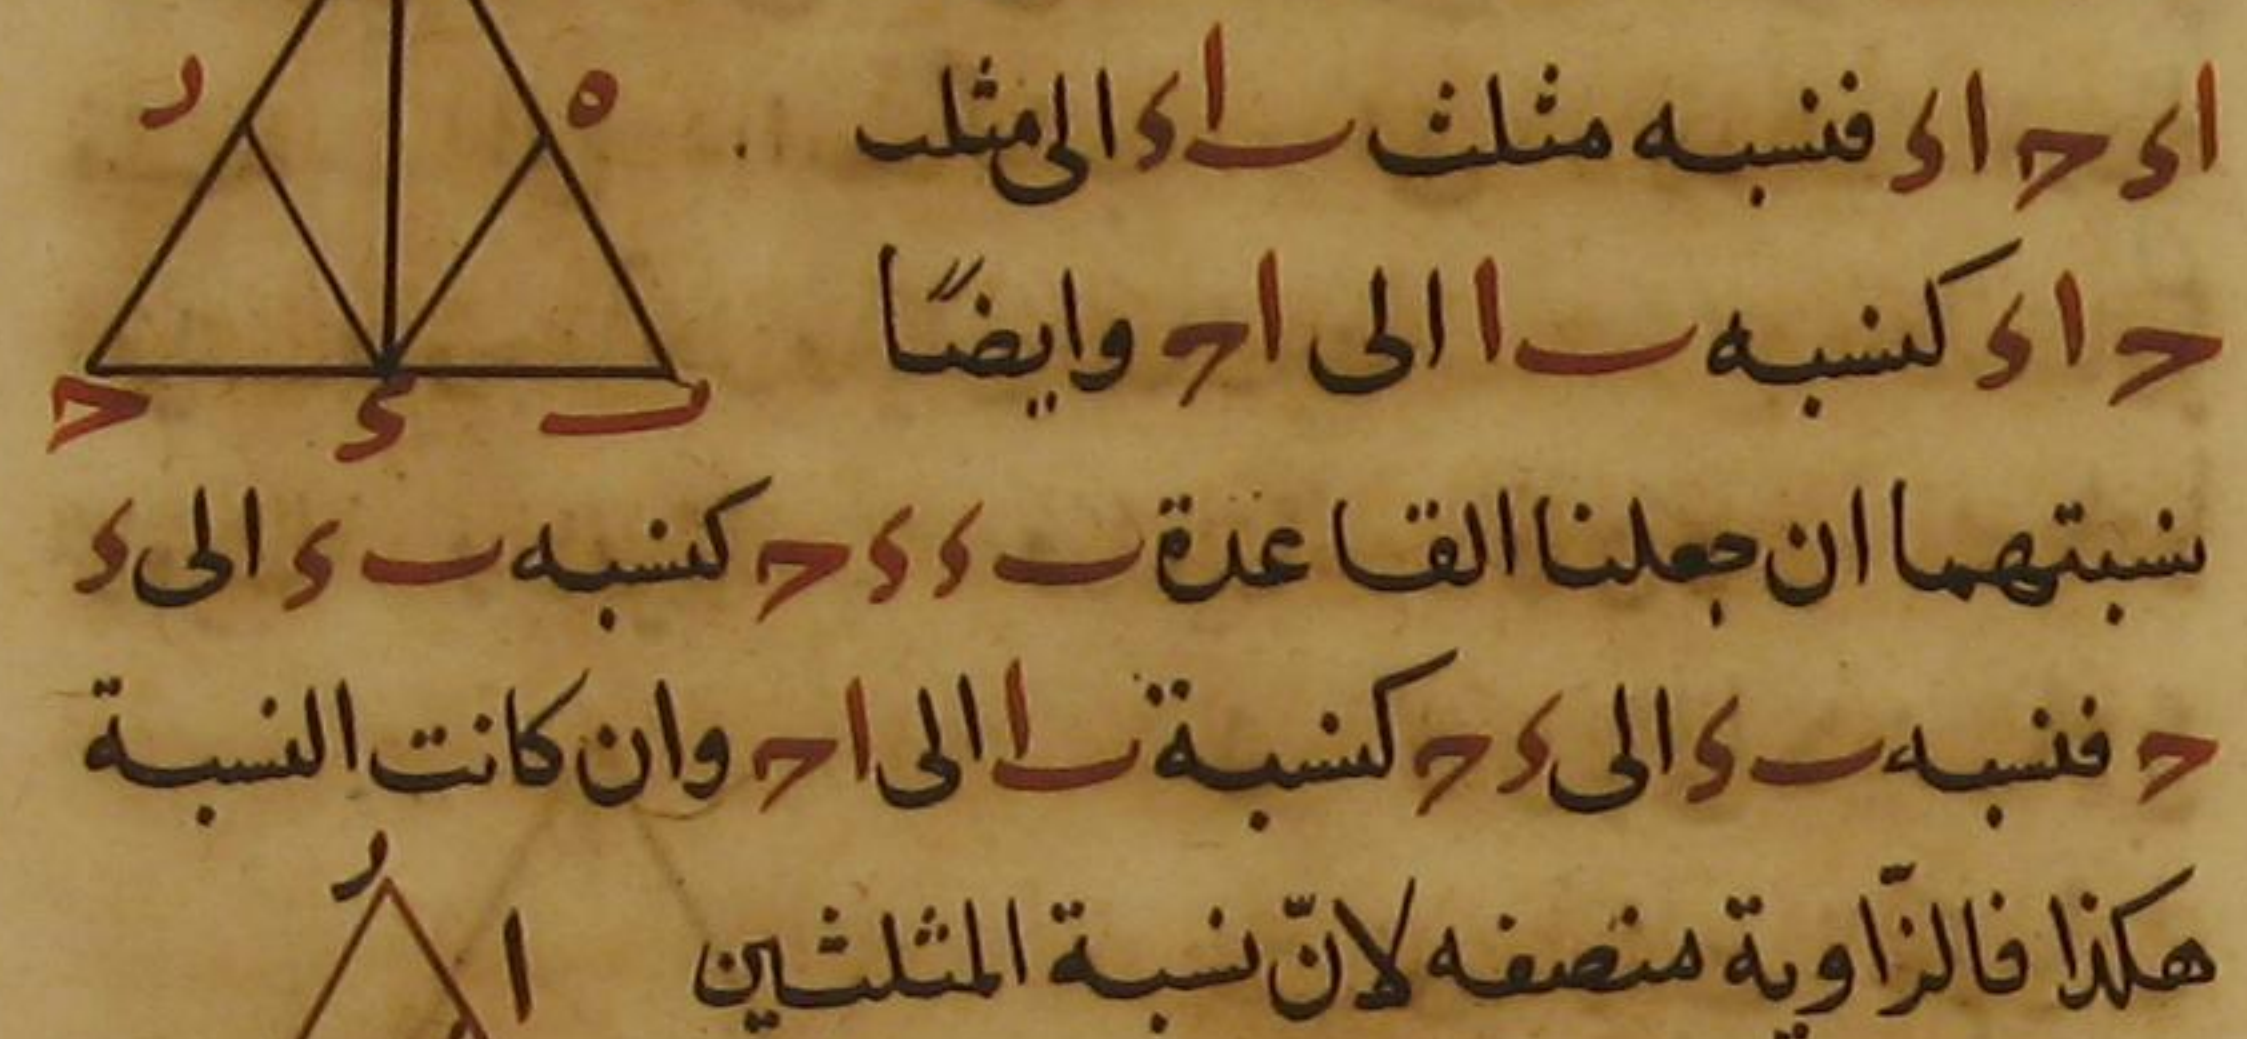 اء حاء فنسبه مثلث ب اء الى مثلث
حاء كنسبه ب ا الى ا ح وايضًا
نسبتهما ان جعلنا القاعدة ب ء ء ح كنسبه ب ء الى ء
ح فنسبه ب ء الى ء ح كنسبة ب ا الى ا ح وان كانت النسبة
هكذا فالزّاوية منصفه لانّ نسبة المثلثين
ر
ه
ح
ء
ب
ر
ا